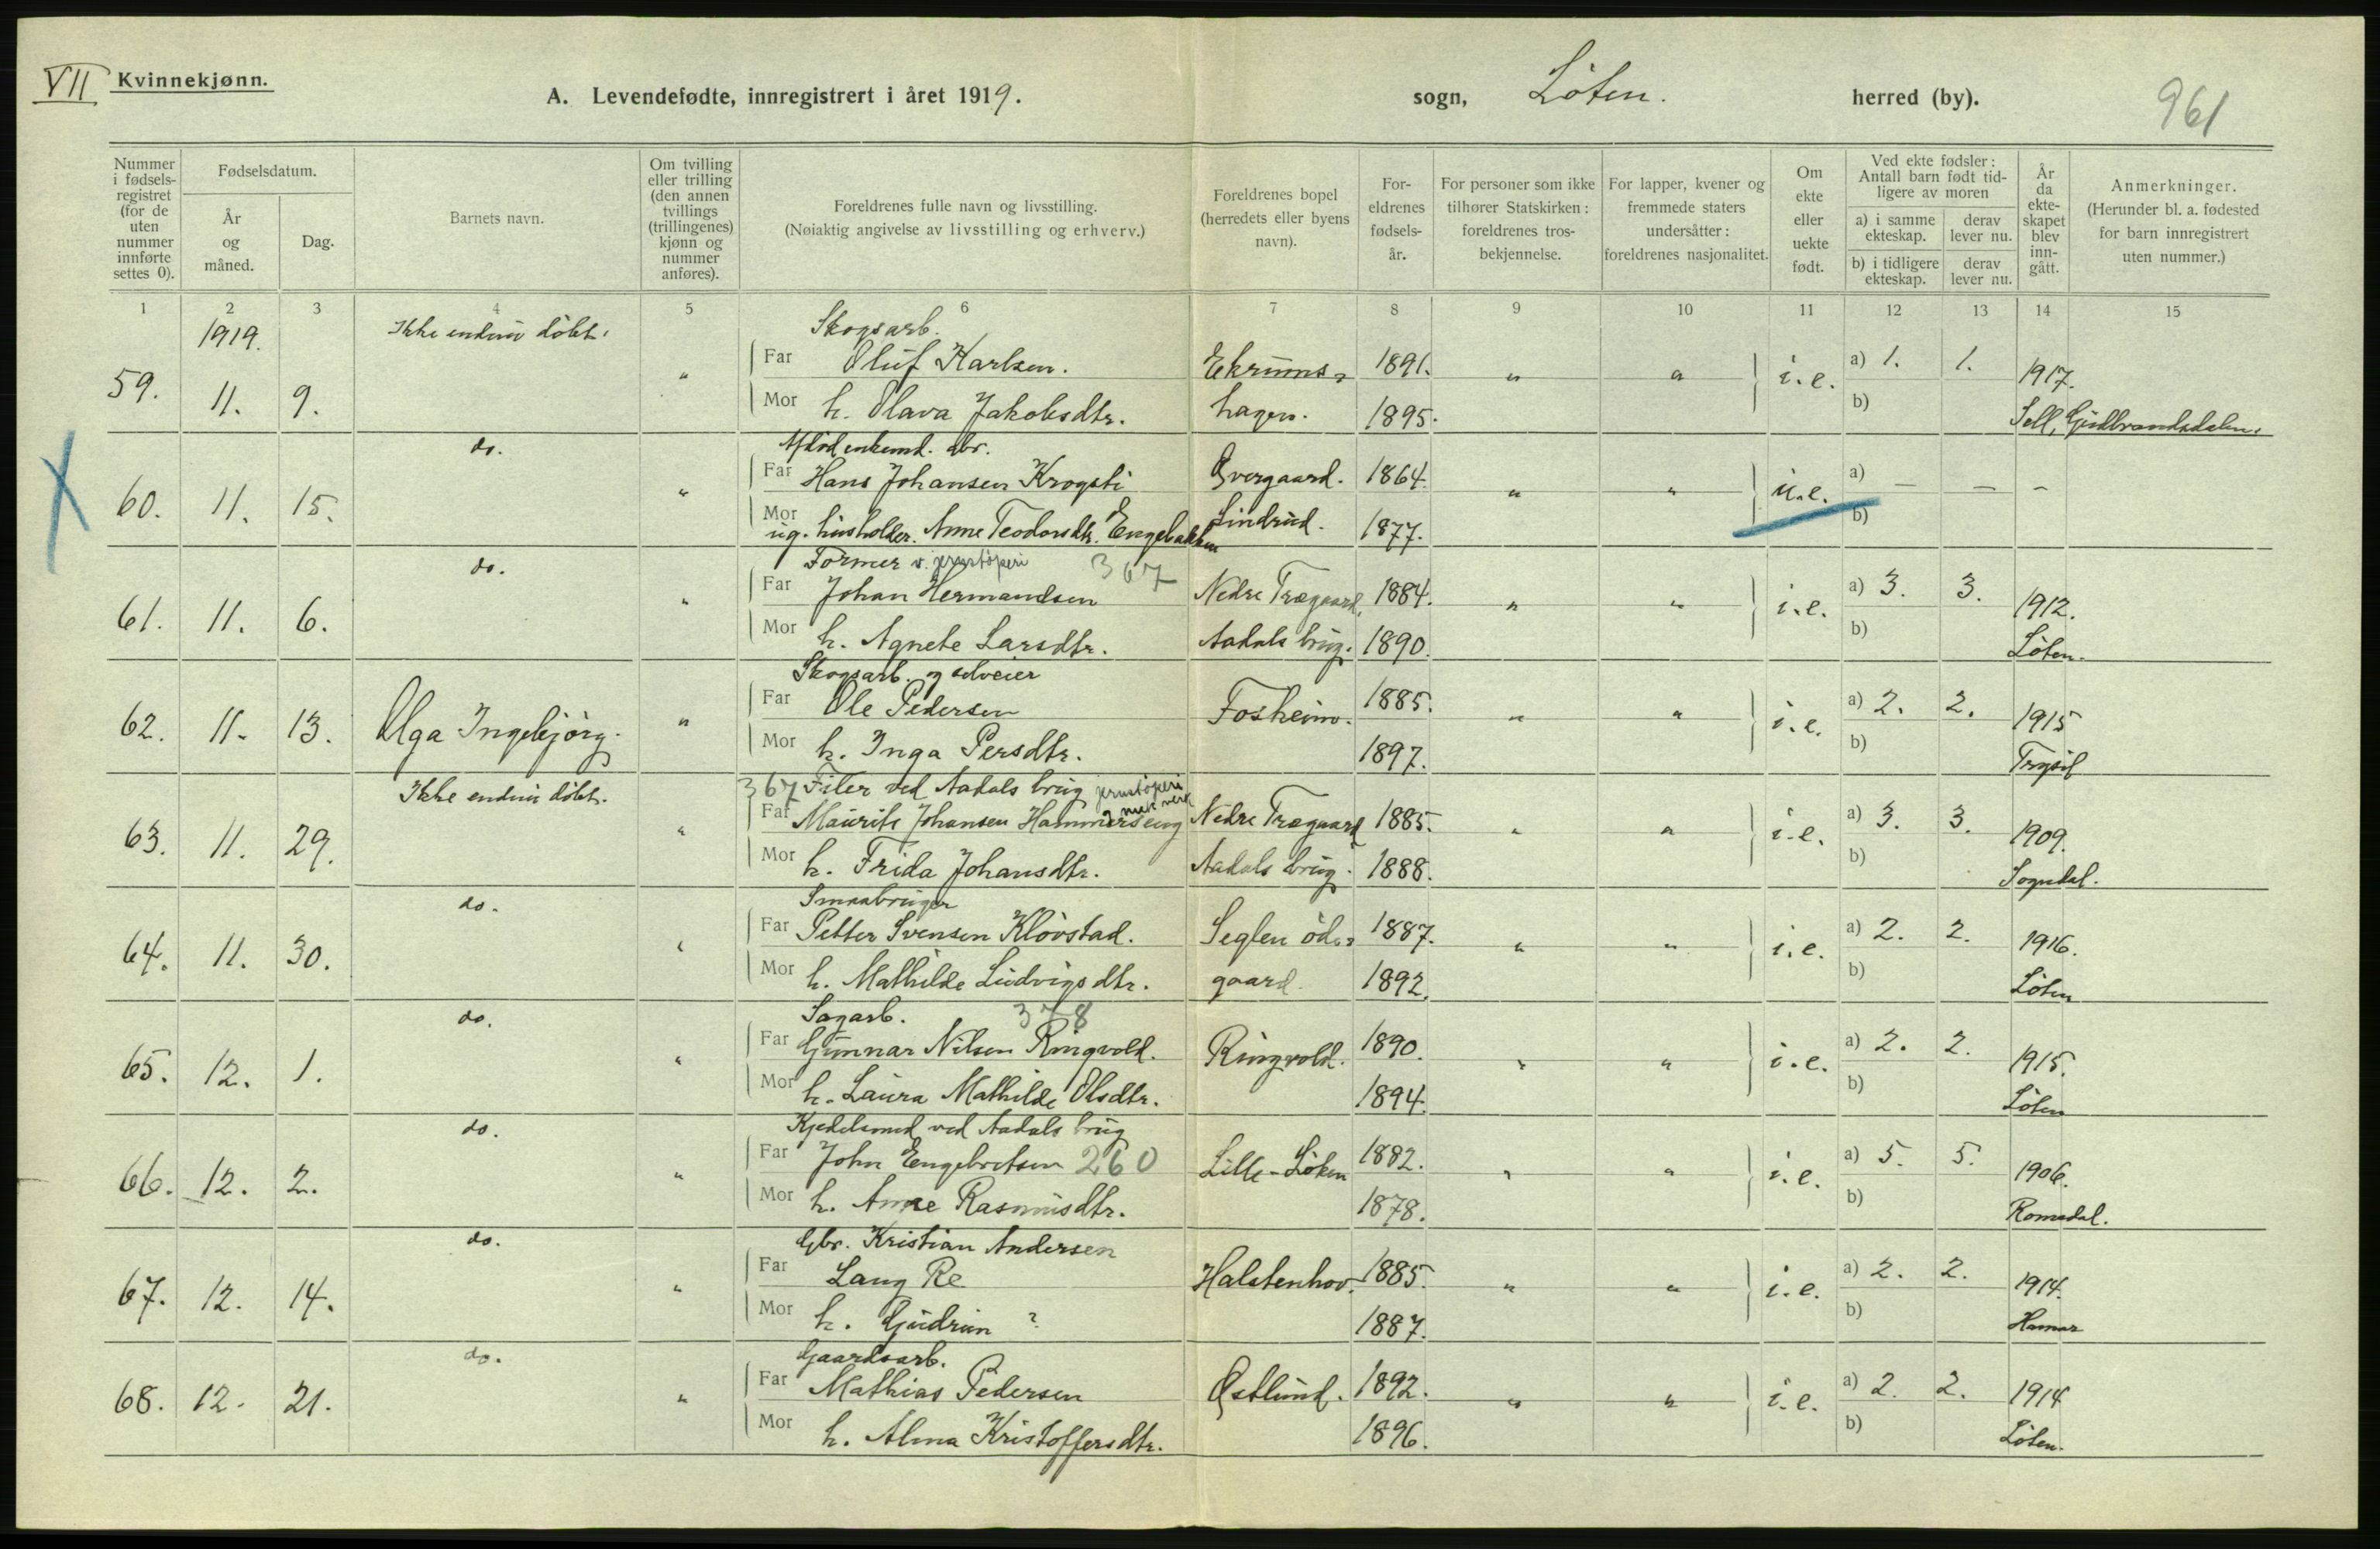 VII Kvinnekjønn.
A. Levendefødte, innregistrert i året 1919. sogn, Löten. herred (by).
961
Nummer i fødselsregistret (for de uten nummer innførte settes 0).
Fødselsdatum.
År og måned.
Dag.
Barnets navn.
Om tvilling eller trilling (den annen tvillings (trillingenes) kjønn og nummer anføres).
Foreldrenes fulle navn og livsstilling.
(Nøiaktig angivelse av livsstilling og erhverv.)
Foreldrenes bopel (herredets eller byens navn).
Foreldrenes fødselsår.
For personer som ikke tilhører Statskirken: foreldrenes trosbekjennelse.
For lapper, kvener og fremmede staters undersåtter: foreldrenes nasjonalitet.
Om ekte eller uekte født.
Ved ekte fødsler: Antall barn født tidligere av moren
a) i samme ekteskap. derav lever nu.
b) i tidligere ekteskap. derav lever nu.
År da ekteskapet blev inngått.
Anmerkninger.
(Herunder bl. a. fødested for barn innregistrert uten nummer.)
1 2 3 4 5 6 7 8 9 10 11 12 13 14 15
1919. Ikke endnu döbt. Skogsarb.
59. 11. 9. " Far Oluf Karlsen. Ekrums- 1891. " " i.e. a) 1. 1. 1917.
Mor h. Olava Jakobsdtr. hagen. 1895. b) Sell, Gudbrandsdalen.
do. gbr.
60. 11. 15. " Far Hans Johansen Krogsti Övergaard. 1864. " " u.e. a) — — —
Mor ug. husholder. Anne Teodorsdtr. Engebakken Lindrud. 1877. b)
do. Former v. jernstöperi 367
61. 11. 6. " Far Johan Hermandsen Nedre Trægaard, 1884. " " i.e. a) 3. 3. 1912.
Mor h. Agnete Larsdtr. Aadals brug. 1890. b) Löten.
Skogsarb. og selveier
62. 11. 13. Olga Ingebjörg. " Far Ole Pedersen Fosheim. 1885. " " i.e. a) 2. 2. 1915
Mor h. Inga Persdtr. 1897. b) Trysil
Ikke endnu döbt. 367 Filer ved Aadals brug jernstöperi og mek verk
63. 11. 29. " Far Maurits Johansen Hammerseng Nedre Trægaard 1885. " " i.e. a) 3. 3. 1909.
Mor h. Frida Johansdtr. Aadals brug. 1888. b) Sogndal.
do. Smaabruger
64. 11. 30. " Far Petter Svensen Klövstad. Seglen öde- 1887. " " i.e. a) 2. 2. 1916.
Mor h. Mathilde Ludvigsdtr. gaard. 1892. b) Löten
do. Sagarb. 378
65. 12. 1. " Far Gunnar Nilsen Ringvold. Ringvold. 1890. " " i.e. a) 2. 2. 1915.
Mor h. Laura Mathilde Olsdtr. 1894. b) Löten
do. Kjedelsmed ved Aadals brug
66. 12. 2. " Far John Engebretsen 260 Lille-Löken 1882. " " i.e. a) 5. 5. 1906.
Mor h. Anne Rasmusdtr. 1878. b) Romedal.
do. Gbr. Kristian Andersen
67. 12. 14. " Far Lang Re Halstenhov. 1885. " " i.e. a) 2. 2. 1914.
Mor h. Gudrun ? 1887. b) Hamar
do. Gaardsarb.
68. 12. 21. " Far Mathias Pedersen Östlund. 1892. " " i.e. a) 2. 2. 1914
Mor h. Alma Kristoffersdtr. 1896. b) Löten.